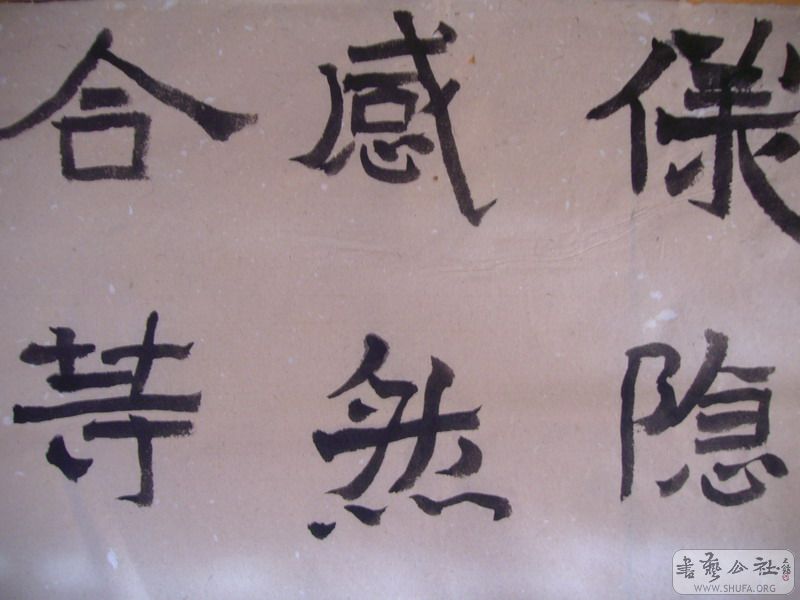 儀隐
感然
合等
書藝公社
WWW.SHUFA.ORG